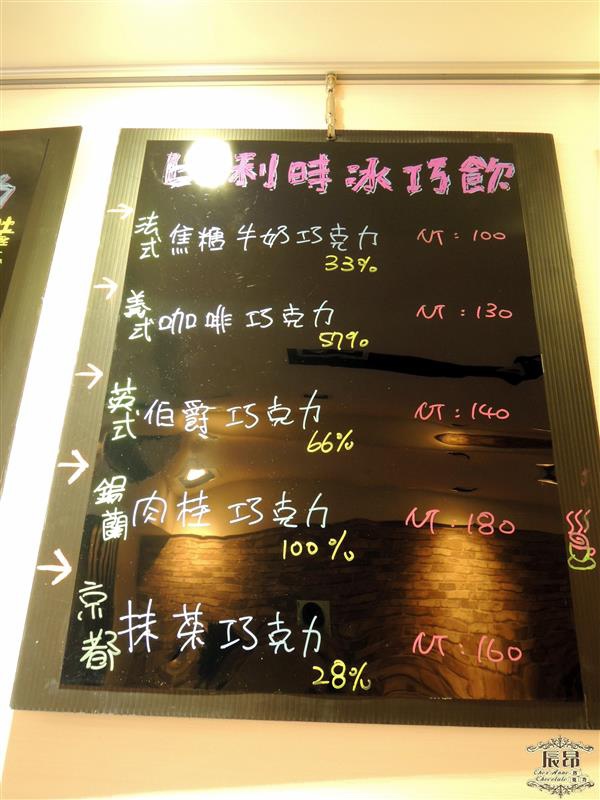 比利時冰巧飲
法式 焦糖牛奶巧克力 NT：100
33%
義式 咖啡巧克力 NT：130
57%
英式 伯爵巧克力 NT：140
66%
錫蘭 肉桂巧克力 NT：180
100%
京都 抹茶巧克力 NT：160
28%
辰昂
Chocolate